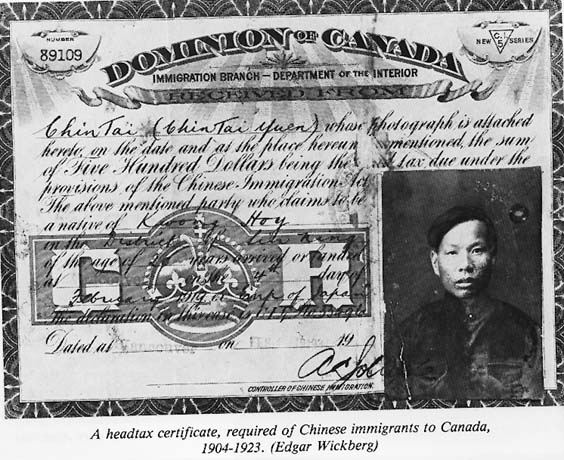 NUMBER
89109
NEW C.I.5 SERIES
DOMINION OF CANADA
IMMIGRATION BRANCH — DEPARTMENT OF THE INTERIOR
RECEIVED FROM
Chin Tai (Chin Tai Yuen) whose photograph is attached
hereto, on the date and at the place hereun mentioned, the sum
of Five Hundred Dollars being the tax due under the
provisions of the Chinese Immigration Act
The above mentioned party who claims to be
a native of Hoy
in the District of
of the age of years arrived or landed
at on the day of
February 1919 ex Emp of Japan
The declaration in this case is C.I.5 No.
Dated at Vancouver on FEB 19
CONTROLLER OF CHINESE IMMIGRATION.
A headtax certificate, required of Chinese immigrants to Canada,
1904-1923. (Edgar Wickberg)